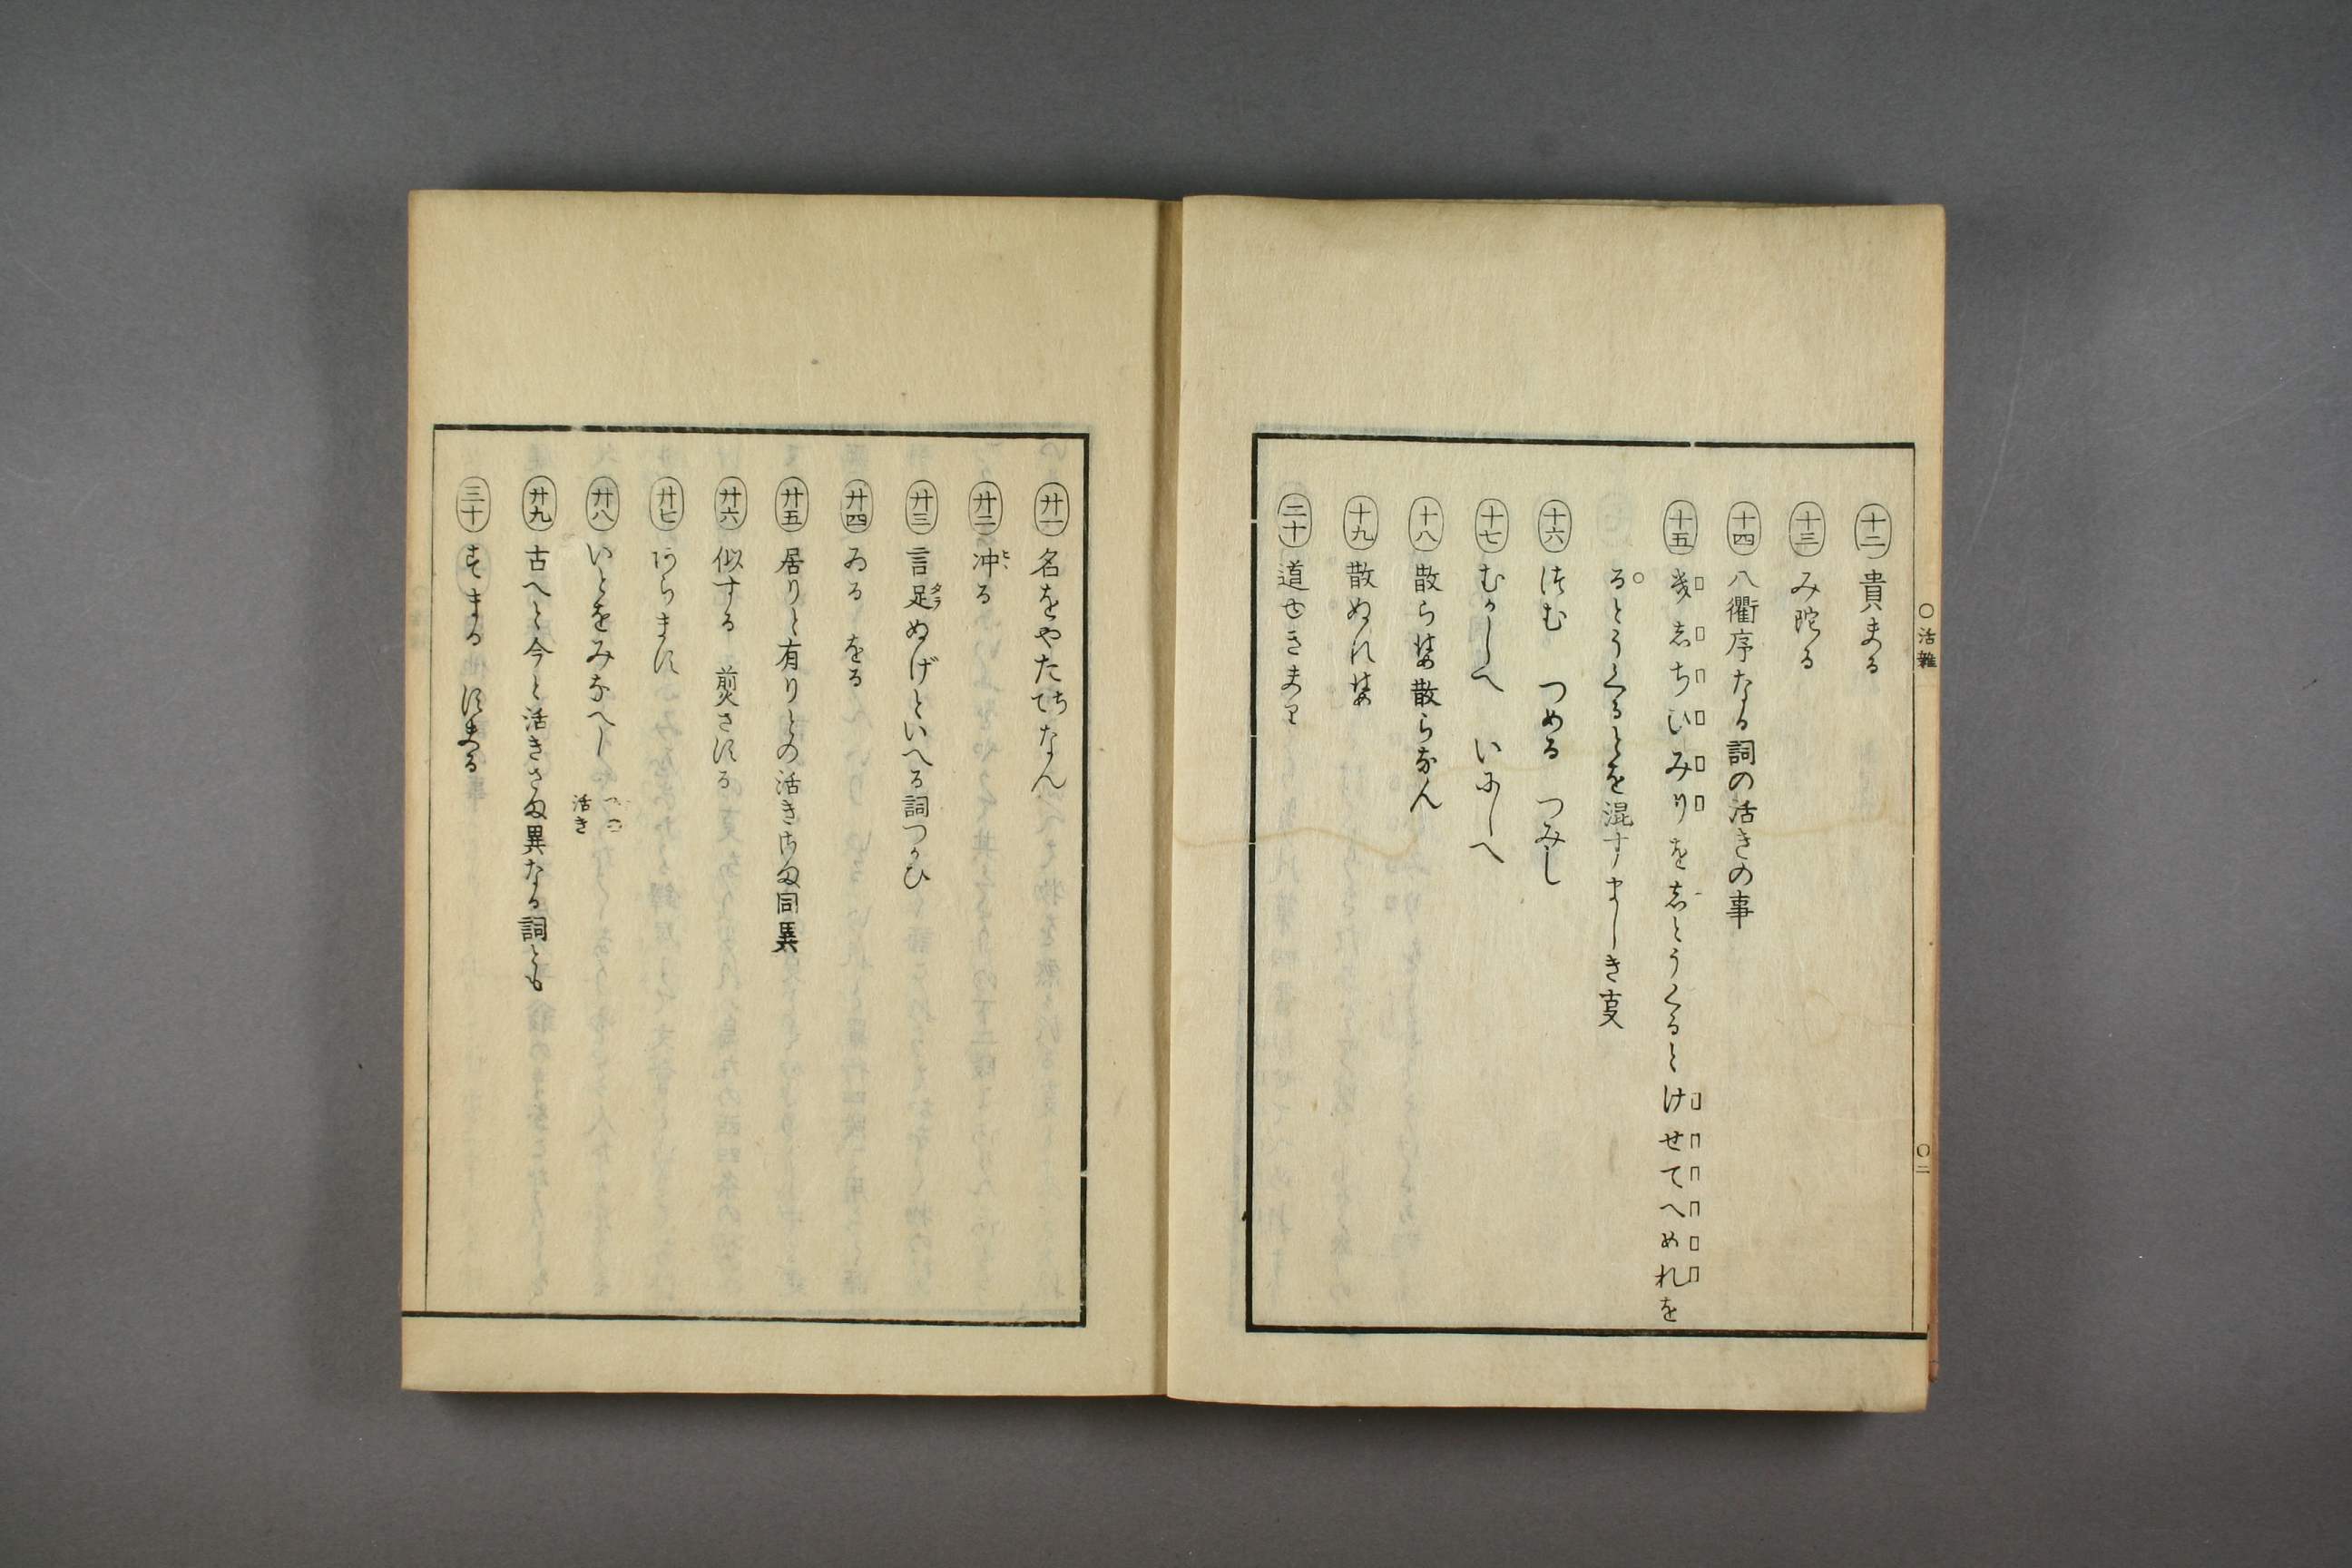 ○活雜 ○二
十二 貴まる
十三 み陀る
十四 八衢序なる詞の活きの事
十五 きしちひみりをしとうくるとけせてへめれを
るとうくるとを混すましき事
十六 つむ つめる つみし
十七 むかしへ いにしへ
十八 散らば散らなん
十九 散ぬれば
二十 道せきまて
廿一 名をやたちてなん
廿二 冲る
廿三 言足ぬげといへる詞つかひ
廿四 ゐる をる
廿五 居りと有りとの活きさま同異
廿六 似する 煎さする
廿七 あらまほ
廿八 いとをみなへし
活き
廿九 古へと今と活きさま異なる詞とも
三十 すまる